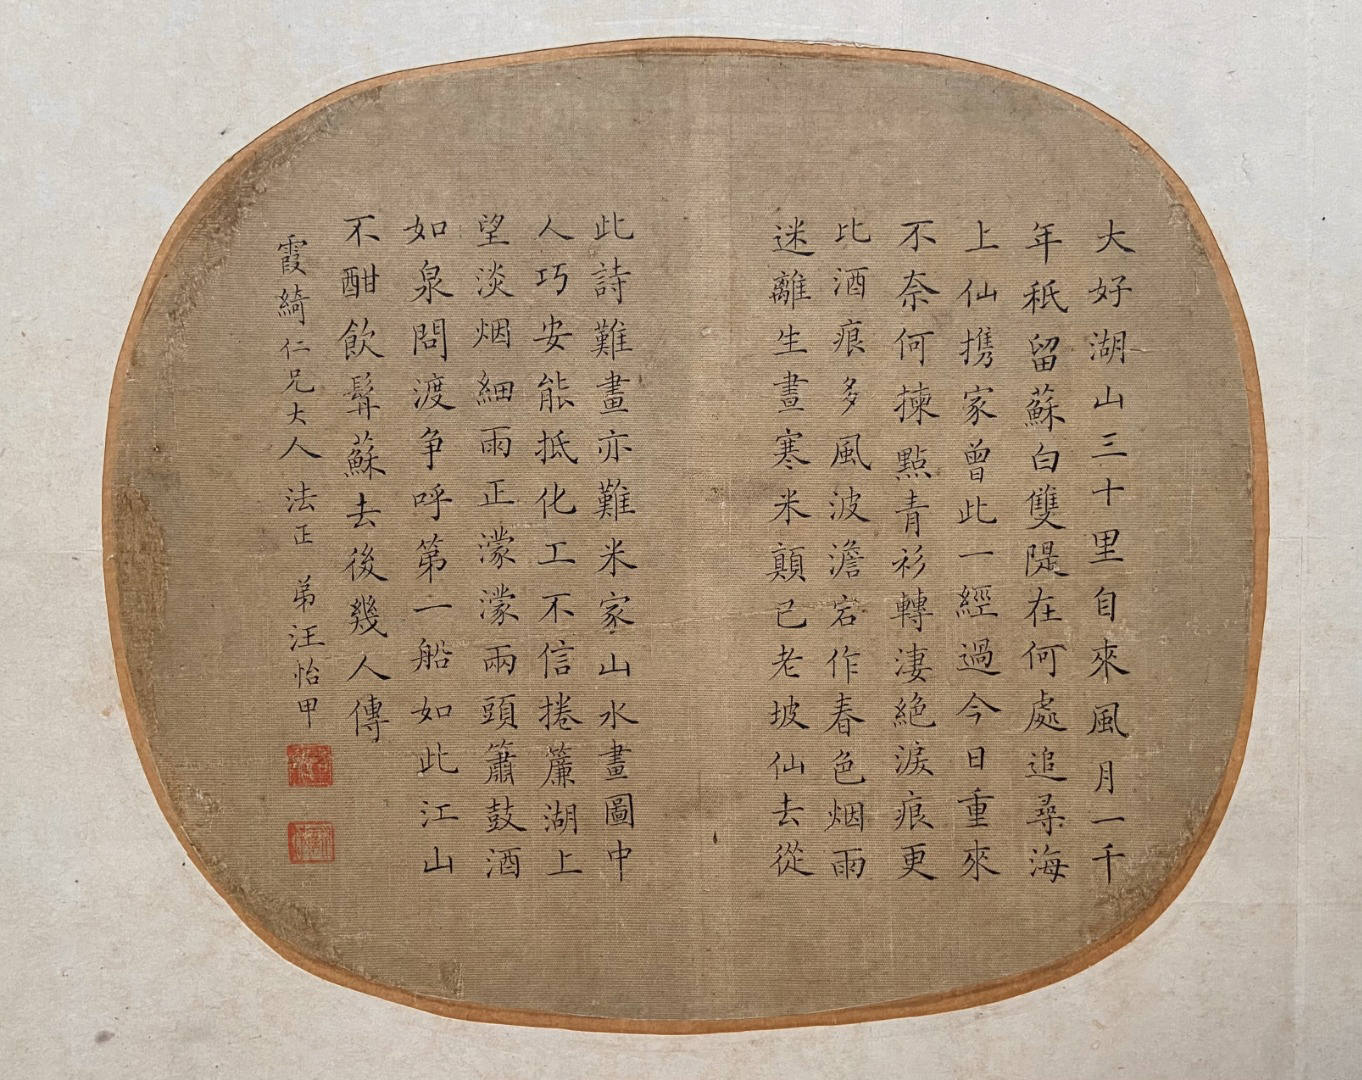 大好湖山三十里自來風月一千
年秖留蘇白雙隄在何處追尋海
上仙携家曾此一經過今日重來
不奈何揀點青衫轉淒絶淚痕更
比酒痕多風波澹宕作春色烟雨
迷離生晝寒米顛已老坡仙去從
此詩難畫亦難米家山水畫圖中
人巧安能抵化工不信捲簾湖上
望淡烟細雨正濛濛兩頭簫鼓酒
如泉問渡争呼第一船如此江山
不酣飲髯蘇去後幾人傳
霞綺仁兄大人法正 弟汪怡甲